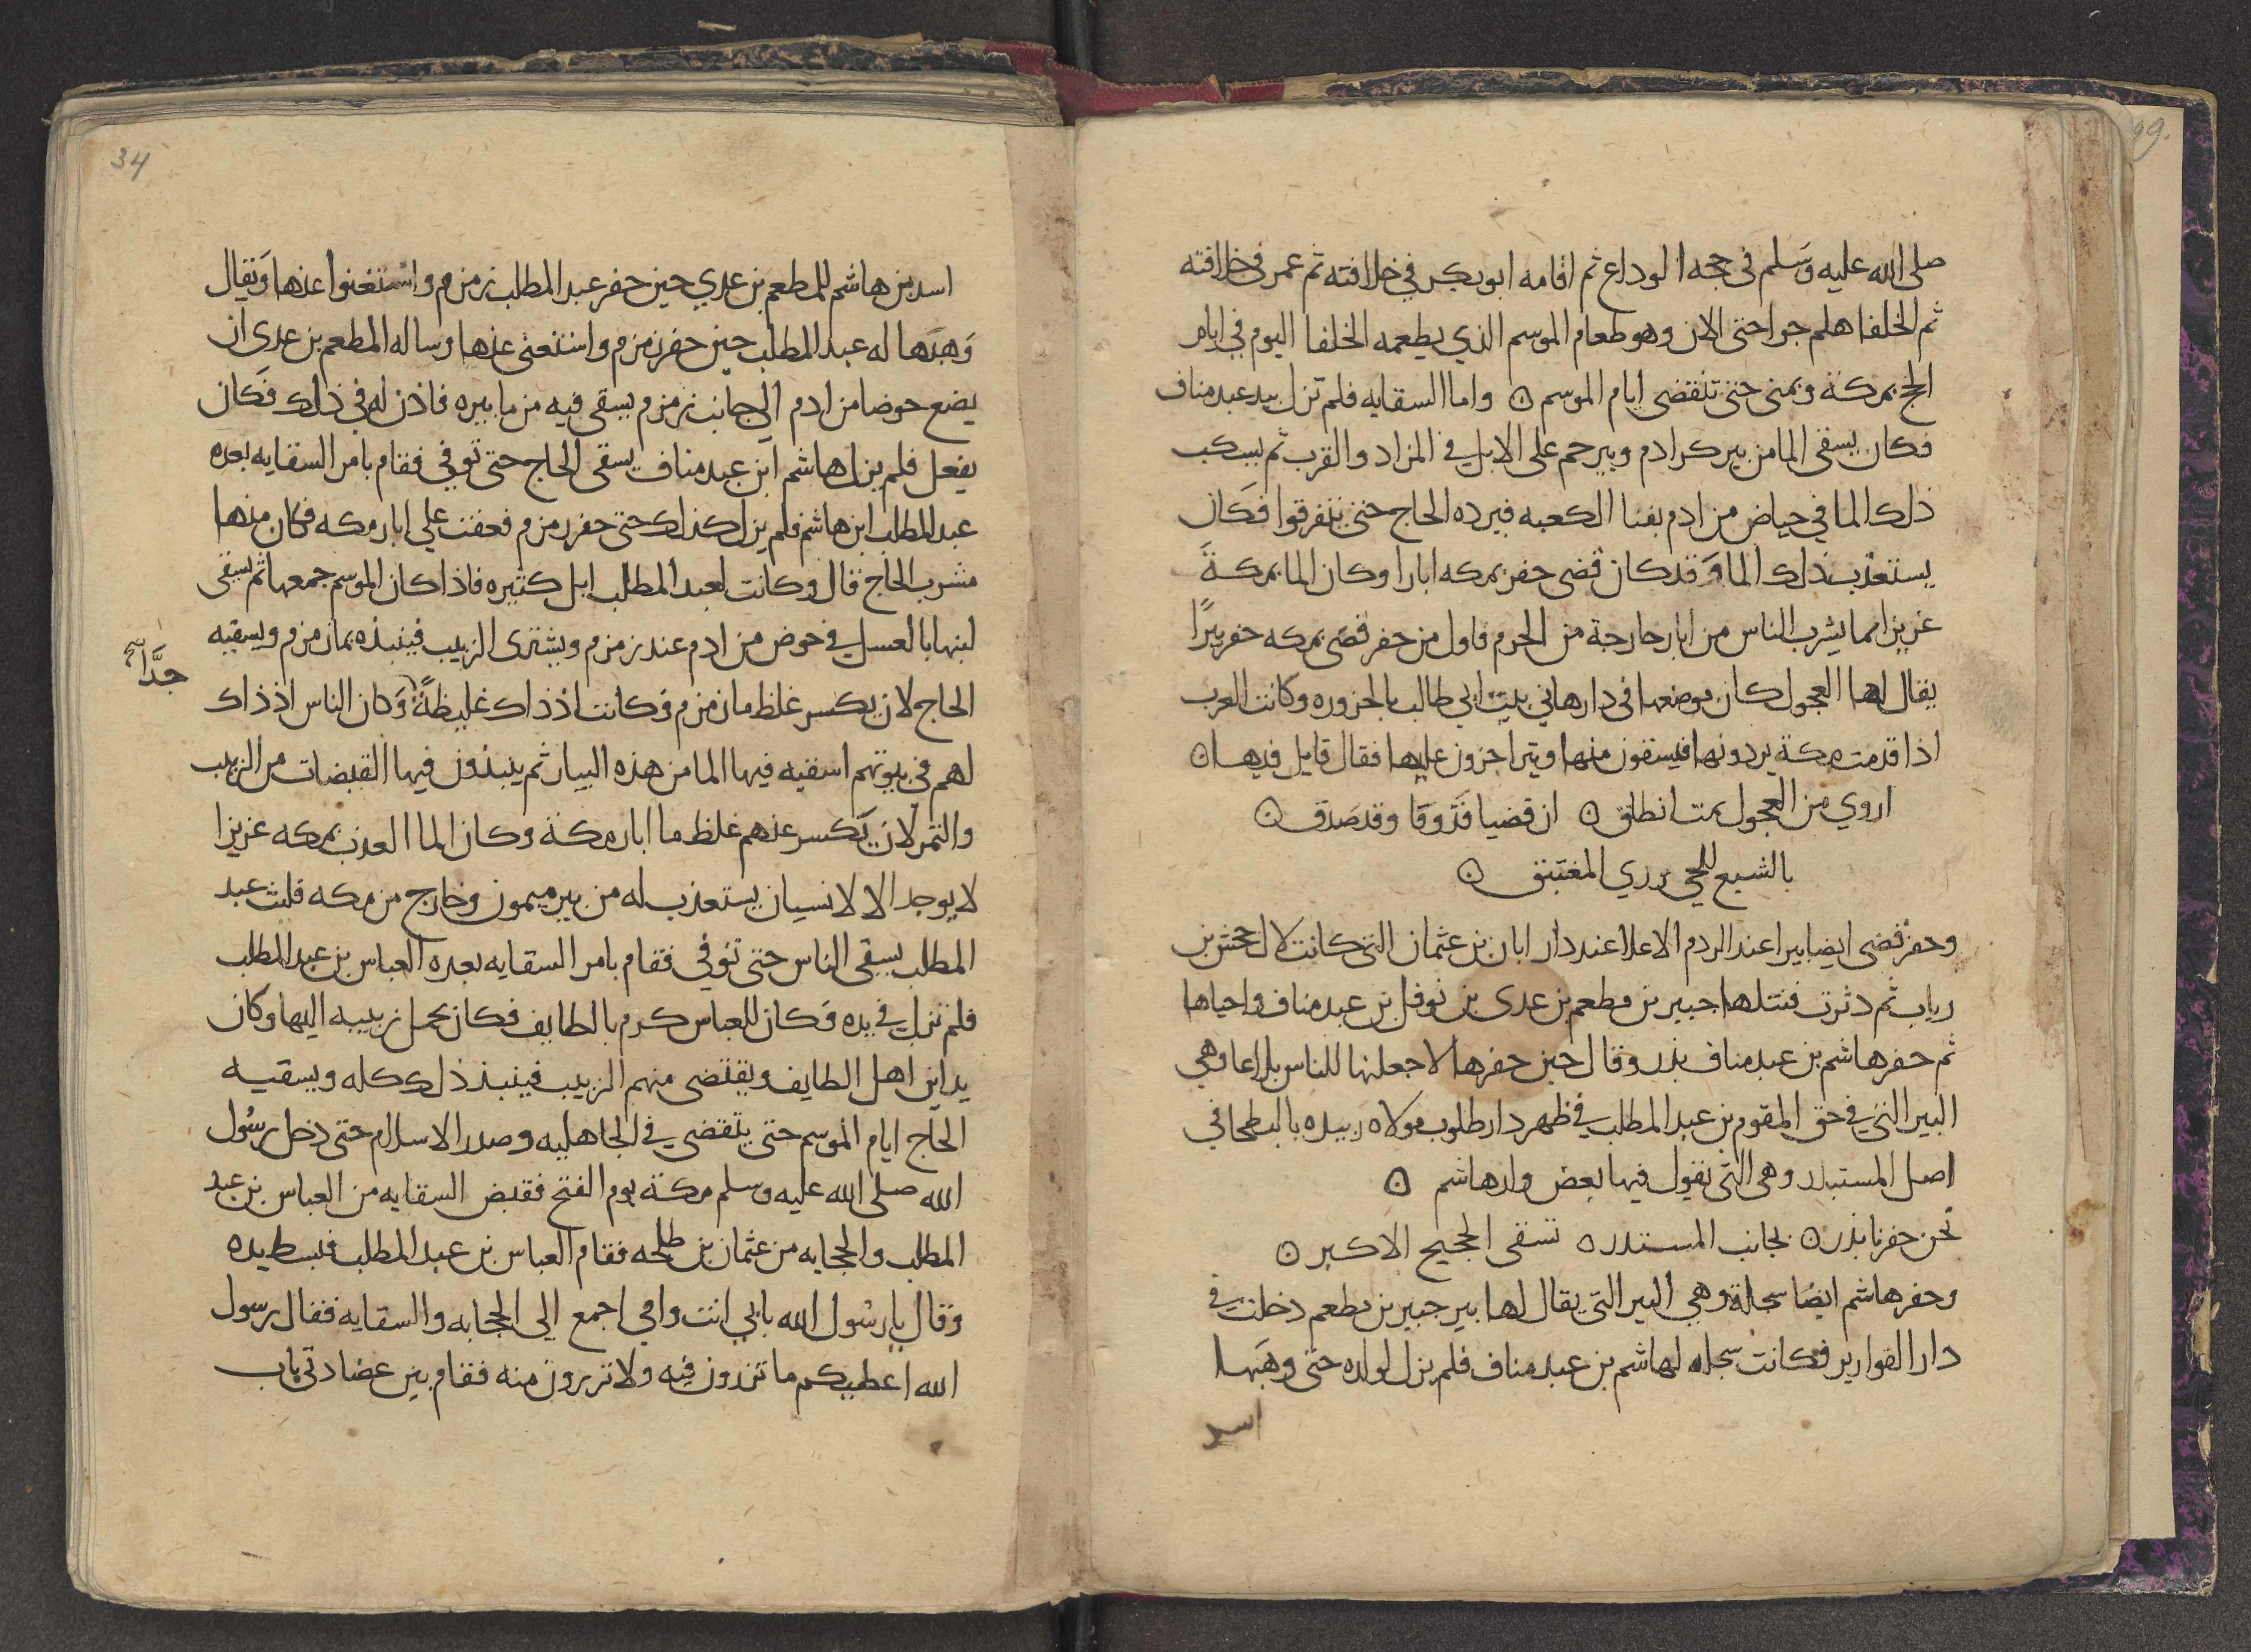 صلى الله عليه وسلم في حجه الوداع ثم اقامه ابو بكر في خلافته ثم عمر في خلافته
ثم الخلفا هلم جرا حتى الان وهو طعام الموسم الذي يطعمه الخلفا اليوم في ايام
الحج بمكة وبمنى حتى تنقضى ايام الموسم ○ واما السقايه فلم تزل بيد عبد مناف
فكان يسقى الما من بير كر ادم وبير خم على الابل في المزاد والقرب ثم يسكب
ذلك الما في حياض من ادم بفنا الكعبه فيرده الحاج حتى يتفرقوا فكان
يستعذب ذلك الما وقد كان قضى حفر بمكه ابارا وكان الما بمكة
عزيزا مما يشرب الناس من ابار خارجة من الحرم فاول من حفر قصى بمكه حفر بيرًا
يقال لها العجول كان موضعها في دار هاني بيت ابي طالب بالحزوره وكانت العرب
اذا قدمت مكة يردونها فيسقون منها ويتراجزون عليها فقال قايل فيها ○
اروي من العجول ثمت انطلق ○ ان قضيا قد وفا وقد صدق ○
بالشبع للحي وري المغتبق ○
وحفر قضى ايضا بيرا عند الردم الاعلا عند دار ابان بن عثمان التي كانت لال جحش بن
رياب ثم دثرت فنتلها جبير بن مطعم بن عدى بن نوفل بن عبد مناف واحياها
ثم حفر هاشم بن عبد مناف بذر وقال حين حفرها لاجعلنها للناس بلاغا وهي
البير التي في حق المقوم بن عبد المطلب في ظهر دار طلوب مولاه زبيده بالبطحا في
اصل المستبذر وهي التي يقول فيها بعض ولد هاشم ○
نحن حفرنا بذر ○ بجانب المستندر ○ نسقى الحجيج الاكبر ○
وحفر هاشم ايضا سجلة وهي البير التي يقال لها بير جبير بن مطعم دخلت في
دار القوارير فكانت سجله لهاشم بن عبد مناف فلم يزل لولده حتى وهبها
اسد
34
اسد بن هاشم للمطعم بن عدي حين حفر عبد المطلب زمزم واستغنوا عنها ويقال
وهبها له عبد المطلب حين حفر زمزم واستغنى عنها وساله المطعم بن عدى ان
يضع حوضا من ادم الى جانب زمزم يسقى فيه من ما بيره فاذن له في ذلك فكان
يفعل فلم يزل هاشم ابن عبد مناف يسقى الحاج حتى توفي فقام بامر السقايه بعده
عبد المطلب ابن هاشم فلم يزل كذلك حتى حفر زمزم فعفت علي ابار مكه فكان منها
مشرب الحاج قال وكانت لعبد المطلب ابل كثيره فاذا كان الموسم جمعها ثم يسقى
لبنها بالعسل في حوض من ادم عند زمزم ويشترى الزبيب فينبذه بما زمزم ويسقيه
الحاج لان يكسر غلظ ما زمزم وكانت اذ ذاك غليظةً وكان الناس اذ ذاك
جدًّا صح
لهم في بيوتهم اسقيه فيها الما من هذه البيار ثم ينبذون فيها القبضات من الزبيب
والتمر لان يكسر عنهم غلظ ما ابار مكة وكان الما العذب بمكه عزيزا
لا يوجد الا لانسان يستعذب له من بير ميمون وخارج من مكه فلبث عبد
المطلب يسقى الناس حتى توفي فقام بامر السقايه بعده العباس بن عبد المطلب
فلم تزل في يده وكان للعباس كرم بالطايف فكان يحمل زبيبه اليها وكان
يداين اهل الطايف ويقتضى منهم الزبيب فينبذ ذلك كله ويسقيه
الحاج ايام الموسم حتى ينقضي في الجاهليه وصدر الاسلام حتى دخل رسول
الله صلى الله عليه وسلم مكة يوم الفتح فقبض السقايه من العباس بن عبد
المطلب والحجابه من عثمان بن طلحه فقام العباس بن عبد المطلب فبسط يده
وقال يا رسول الله بابي انت وامي اجمع الي الحجابه والسقايه فقال رسول
الله اعطيكم ما ترزون فيه ولا ترزون منه فقام بين عضادتى باب